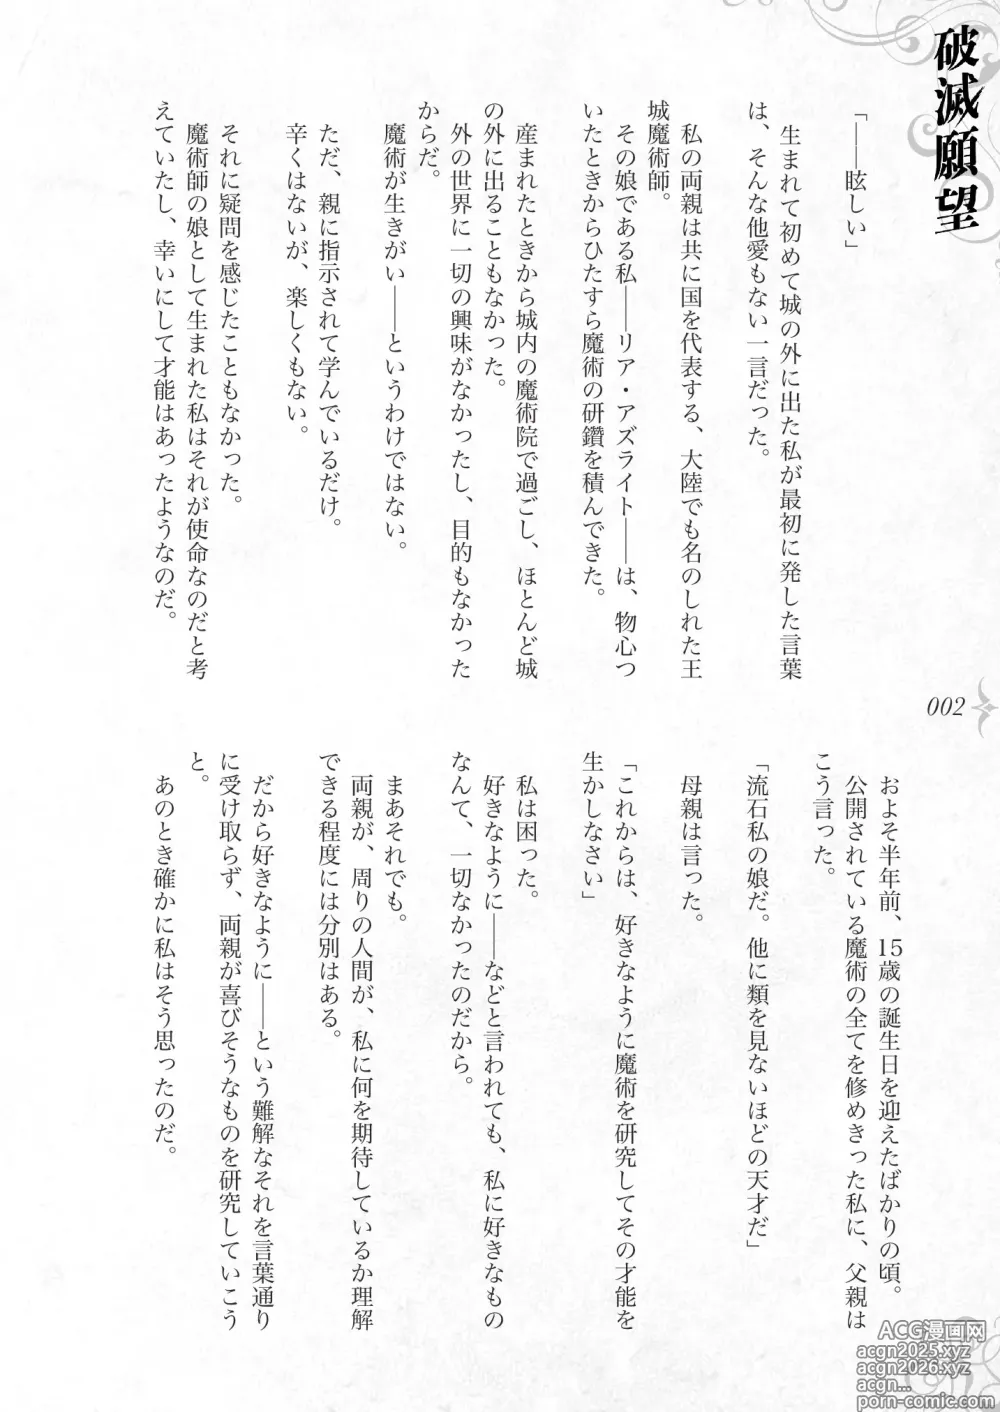 破滅願望
「――眩しい」
生まれて初めて城の外に出た私が最初に発した言葉
は、そんな他愛もない一言だった。
私の両親は共に国を代表する、大陸でも名のしれた王
城魔術師。
その娘である私――リア・アズライト――は、物心つ
いたときからひたすら魔術の研鑽を積んできた。
産まれたときから城内の魔術院で過ごし、ほとんど城
の外に出ることもなかった。
外の世界に一切の興味がなかったし、目的もなかった
からだ。
魔術が生きがい――というわけではない。
ただ、親に指示されて学んでいるだけ。
辛くはないが、楽しくもない。
それに疑問を感じたこともなかった。
魔術師の娘として生まれた私はそれが使命なのだと考
えていたし、幸いにして才能はあったようなのだ。
002
およそ半年前、15歳の誕生日を迎えたばかりの頃。
公開されている魔術の全てを修めきった私に、父親は
こう言った。
「流石私の娘だ。他に類を見ないほどの天才だ」
母親は言った。
「これからは、好きなように魔術を研究してその才能を
生かしなさい」
私は困った。
好きなように――などと言われても、私に好きなもの
なんて、一切なかったのだから。
まあそれでも。
両親が、周りの人間が、私に何を期待しているか理解
できる程度には分別はある。
だから好きなように――という難解なそれを言葉通り
に受け取らず、両親が喜びそうなものを研究していこう
と。
あのとき確かに私はそう思ったのだ。
ACG漫画网
acgn2025.xyz
acgn2026.xyz
acgn...
porn-comic.com